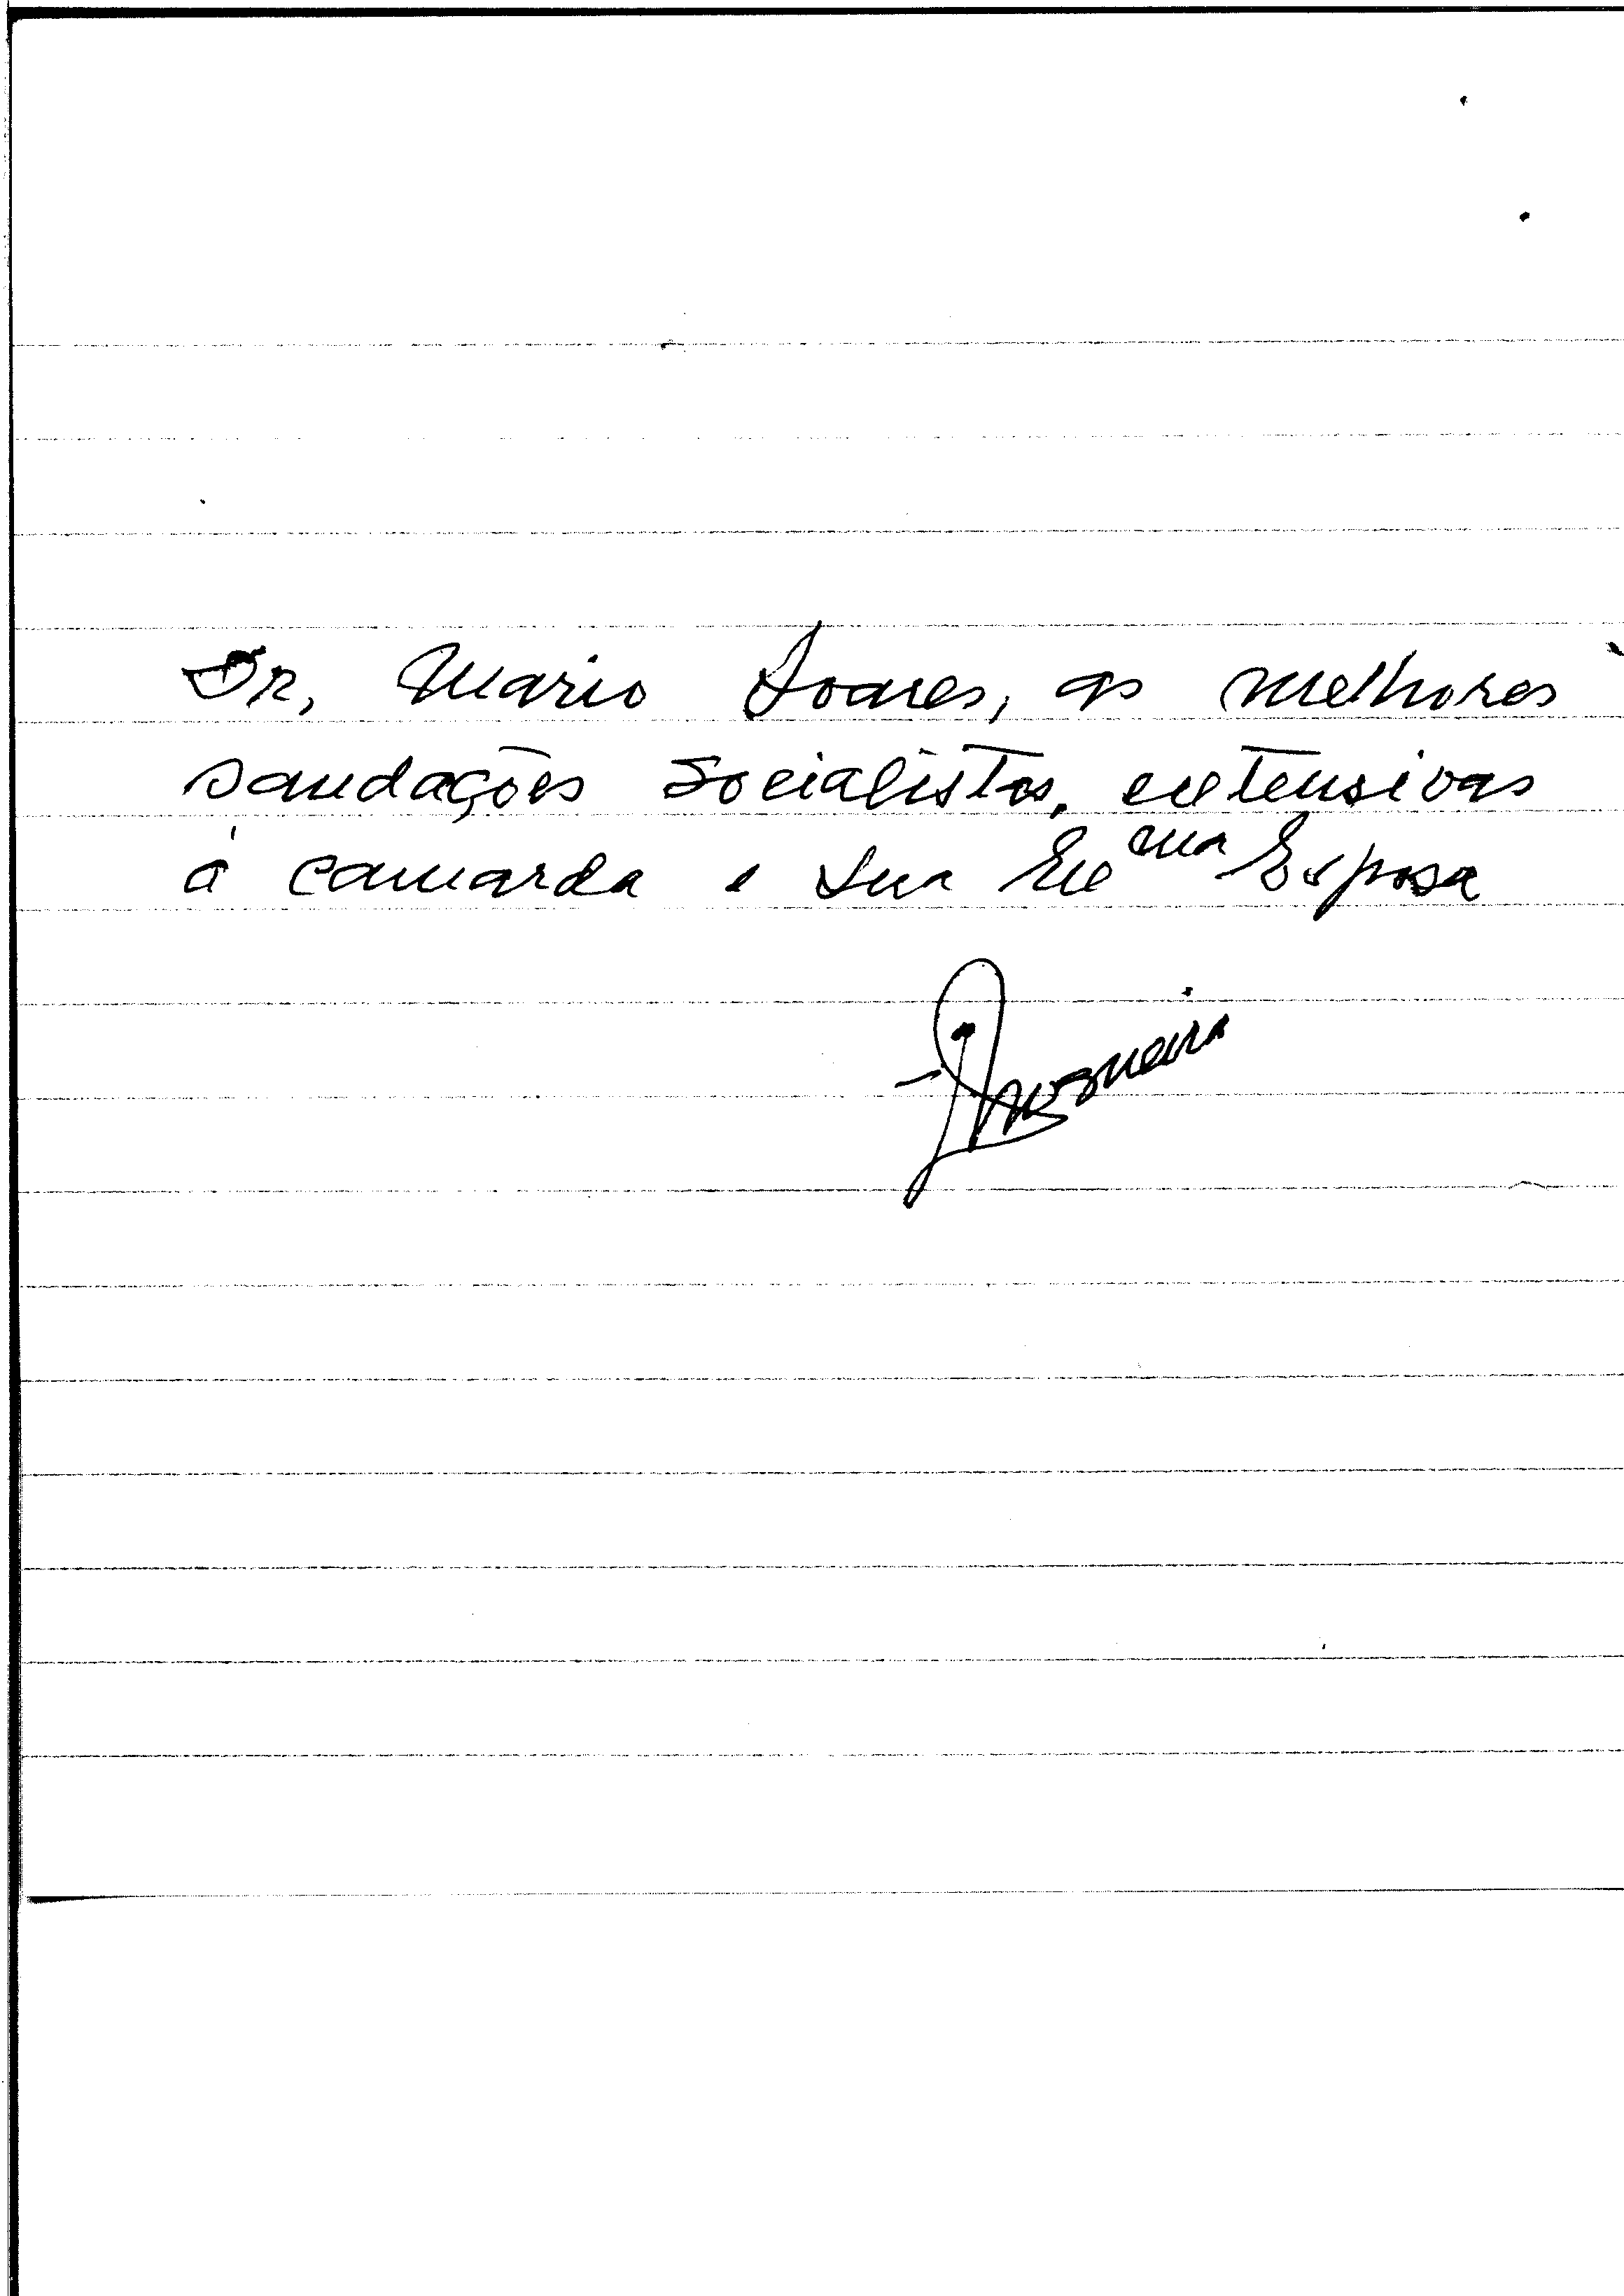 Dr, Mario Soares, as melhores
saudações socialistas, extensivas
á camarda e sua Exma Esposa
Nogueira